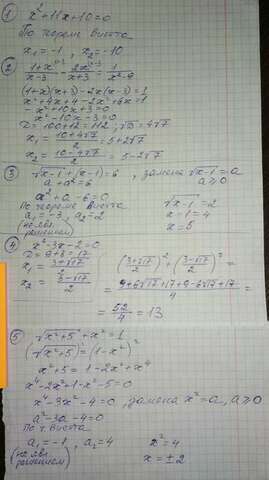 ① x²+11x+10=0
По теореме Виета
x₁=-1 , x₂=-10
② (1+x)/(x-3) - 2x/(x+3) = 1/(x²-9)
(1+x)(x+3)-2x(x-3)=1
x²+4x+4-2x²+6x=1
-x²+10x+3=0
x²-10x-3=0
D=100+12=112, √D=4√7
x₁=(10+4√7)/2=5+2√7
x₂=(10-4√7)/2=5-2√7
③ √x-1+(x-1)=6 , замена √x-1=a
a+a²=6 a≥0
a²+a-6=0 √x-1=2
По теореме Виета x-1=4
a₁=-3, a₂=2 x=5
(не явл. решением)
④ x²-3x-2=0
D=9+8=17
x₁=(3+√17)/2 ((3+√17)/2)²+((3-√17)/2)²=
x₂=(3-√17)/2 =(9+6√17+17+9-6√17+17)/4=
=52/4=13
⑤ √x²+5+x²=1
(√x²+5)²=(1-x²)²
x²+5=1-2x²+x⁴
x⁴-2x²+1-x²-5=0
x⁴-3x²-4=0 , замена x²=a, a≥0
a²-3a-4=0
По т. Виета
a₁=-1, a₂=4 x²=4
(не явл. решением) x=±2